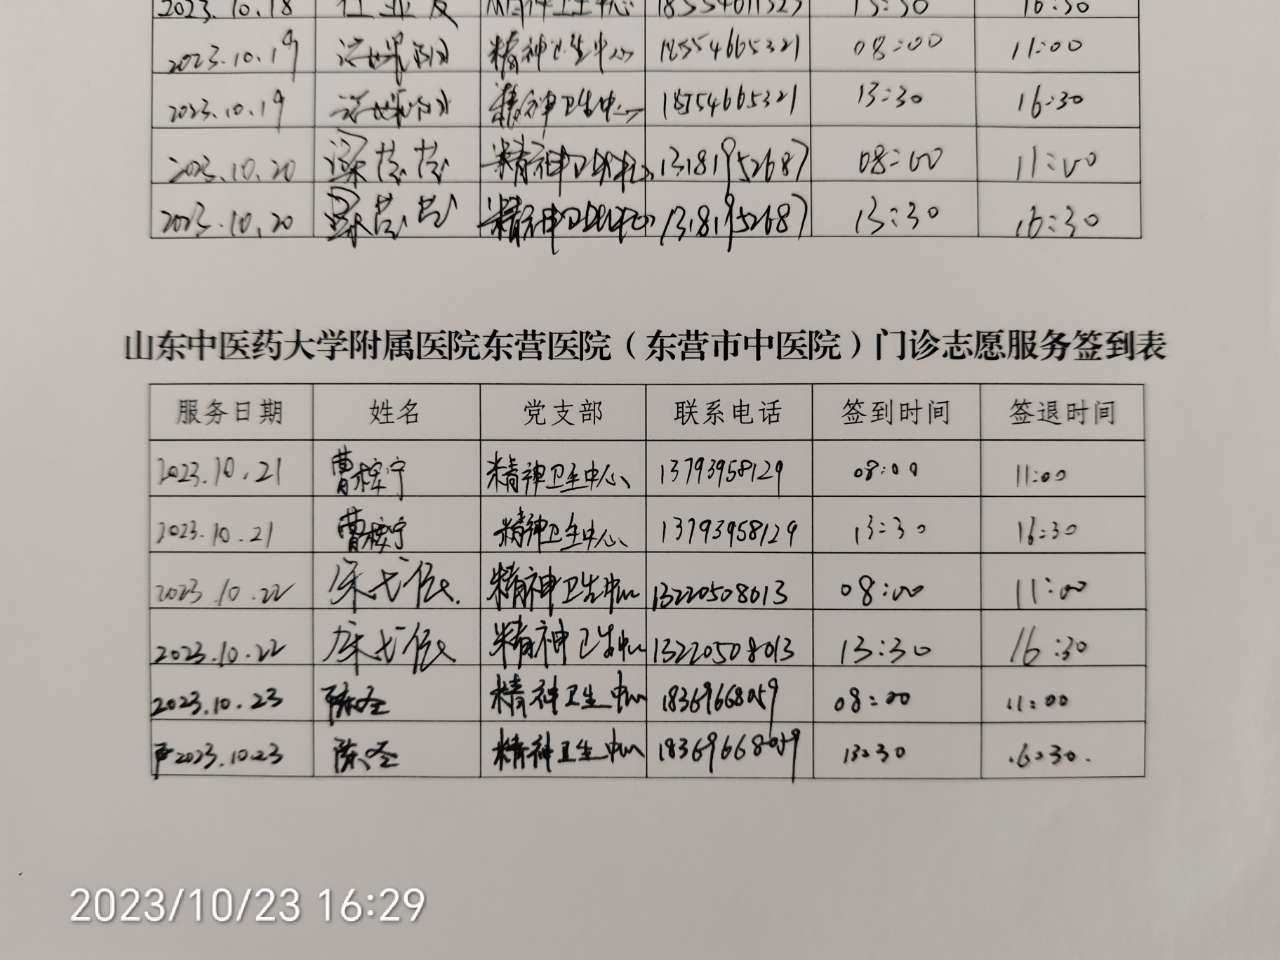 2023.10.18 精神卫生中心 18554611323 13:30 16:30
2023.10.19 精神卫生中心 18554665321 08:00 11:00
2023.10.19 精神卫生中心 18754665321 13:30 16:30
2023.10.20 梁芸芸 精神卫生中心 13181952687 08:00 11:00
2023.10.20 梁芸芸 精神卫生中心 13181952687 13:30 16:30
山东中医药大学附属医院东营医院（东营市中医院）门诊志愿服务签到表
服务日期 姓名 党支部 联系电话 签到时间 签退时间
2023.10.21 曹梓宁 精神卫生中心 13793958129 08:00 11:00
2023.10.21 曹梓宁 精神卫生中心 13793958129 13:30 16:30
2023.10.22 精神卫生中心 13220508013 08:00 11:00
2023.10.22 精神卫生中心 13220508013 13:30 16:30
2023.10.23 陈圣 精神卫生中心 18369668059 08:00 11:00
2023.10.23 陈圣 精神卫生中心 18369668059 13:30 16:30.
2023/10/23 16:29